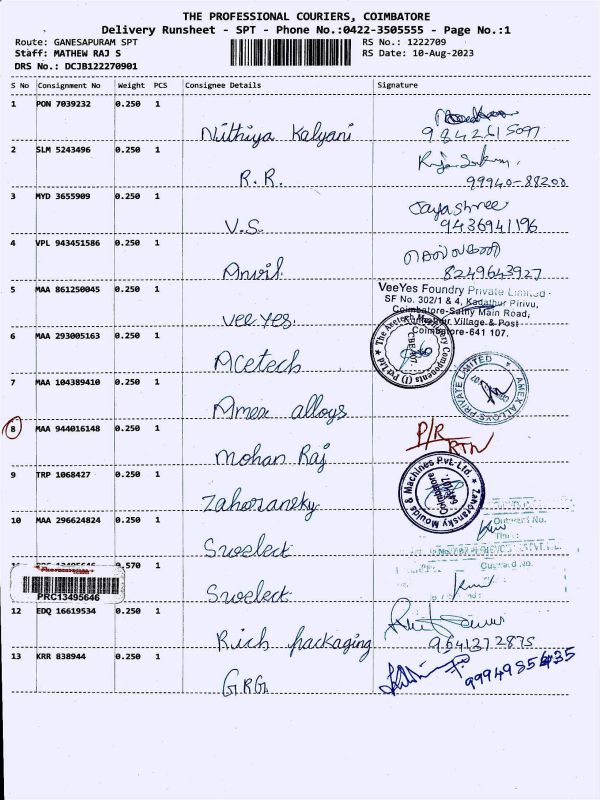 THE PROFESSIONAL COURIERS, COIMBATORE
Delivery Runsheet - SPT - Phone No.:0422-3505555 - Page No.:1
Route: GANESAPURAM SPT
RS No.: 1222709
Staff: MATHEW RAJ S
RS Date: 10-Aug-2023
DRS No.: DCJB122270901
S No Consignment No Weight PCS Consignee Details Signature
1 PON 7039232 0.250 1
Nithiya Kalyani 9842615097
2 SLM 5243496 0.250 1
R.R. 99940-88200
3 MYD 3655909 0.250 1 Jayashree
V.S. 9436941196
4 VPL 943451586 0.250 1
8249643927
5 MAA 861250045 0.250 1 VeeYes Foundry Private Limited
SF No. 302/1 & 4, Kadathur Pirivu,
Coimbatore-Sathy Main Road,
Village & Post
vee yes. Coimbatore-641 107.
6 MAA 293005163 0.250 1
Acetech
7 MAA 104389410 0.250 1 AMEX ALLOYS PRIVATE LIMITED
Amex alloys
8 MAA 944016148 0.250 1 P/R RTN
Mohan Raj
9 TRP 1068427 0.250 1 Zahoransky Moulds & Machines Pvt.Ltd.
Coimbatore
641107.
Zahoransky
10 MAA 296624824 0.250 1
Swelect
0.570 1
PRC13495646
Swelect
12 EDQ 16619534 0.250 1
Rich packaging 9641372875
13 KRR 838944 0.250 1
GRG